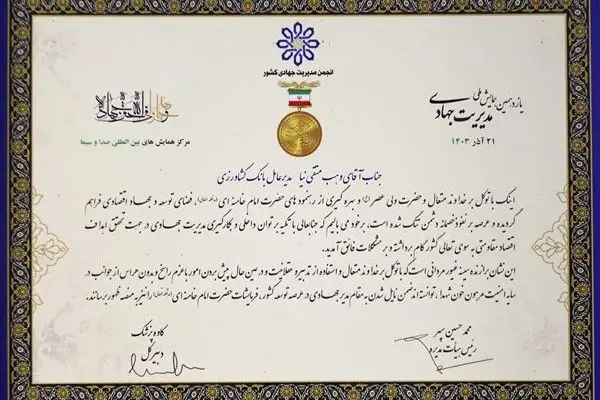 انجمن مدیریت جهادی کشور
یازدهمین همایش ملی
مدیریت جهادی
۲۱ آذر ۱۴۰۳
مرکز همایش های بین المللی صدا و سیما
جناب آقای وهب متقی نیا مدیرعامل بانک کشاورزی
اینک با توکل بر خداوند متعال و حضرت ولی عصر و بهره گیری از رهنمودهای حضرت امام خامنه ای فضای توسعه و جهاد اقتصادی فراهم
گردیده و عرصه بر نفوذ خصمانه دشمن تنگ شده است، برخود می بالیم که جنابعالی با تکیه بر توان داخلی و بکارگیری مدیریت جهادی در جهت تحقق اهداف
اقتصاد مقاومتی به سوی تعالی کشور گام برداشته و بر مشکلات فائق آمدید.
این نشان برازنده سینه غیور مردانی است که با توکل بر خداوند متعال و استفاده از تدبیر و عقلانیت و در عین حال پیش بردن امور با عزم راسخ و بدون هراس از جوانب در
سایه امنیت مرهون خون شهدا، توانسته اند ضمن نایل شدن به مقام مدیر جهادی در عرصه توسعه کشور، فرمایشات حضرت امام خامنه ای را نیز به منصه ظهور برسانند.
محمد حسین سپهر
رئیس هیأت مدیره
کاوه پزشک
دبیر کل